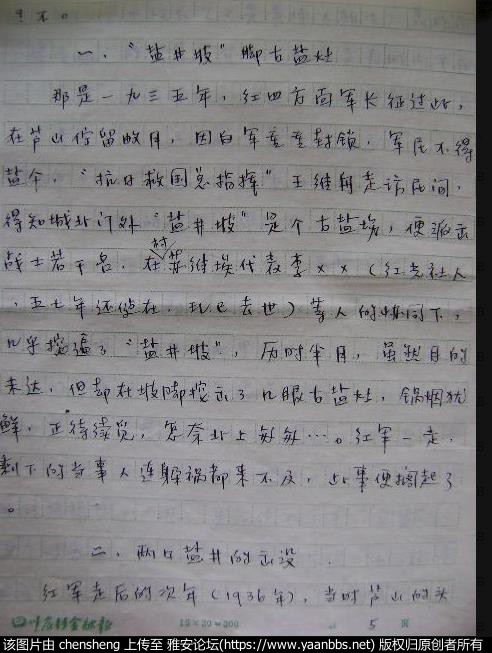 不。
一、“盐井坡”脚古盐灶
那是一九三五年,红四方面军长征过此,
在芦山停留数月,因白军重重封锁,军民不得
盐个,“抗日救国总指挥”王维舟走访民间,
得知城北门外“盐井坡”是个古盐埃,便派出
战士若干名,在时苏维埃代表李××(红光社人
,五七年还健在,现已去世)等人的陪同下,
几乎挖遍了“盐井坡”,历时半月,虽然目的
未达,但却在坡脚挖出了几眼古盐灶,锅烟犹
鲜,正待续觅,怎奈北上匆匆…。红军一走,
剩下的当事人连躲祸都来不及,此事便搁起了
。
二、两口盐井的出没
红军走后的次年(1936年),当时芦山的头
15×20=300
5 页
该图片由 chensheng 上传至 雅安论坛(https://www.yaanbbs.net) 版权归原创者所有